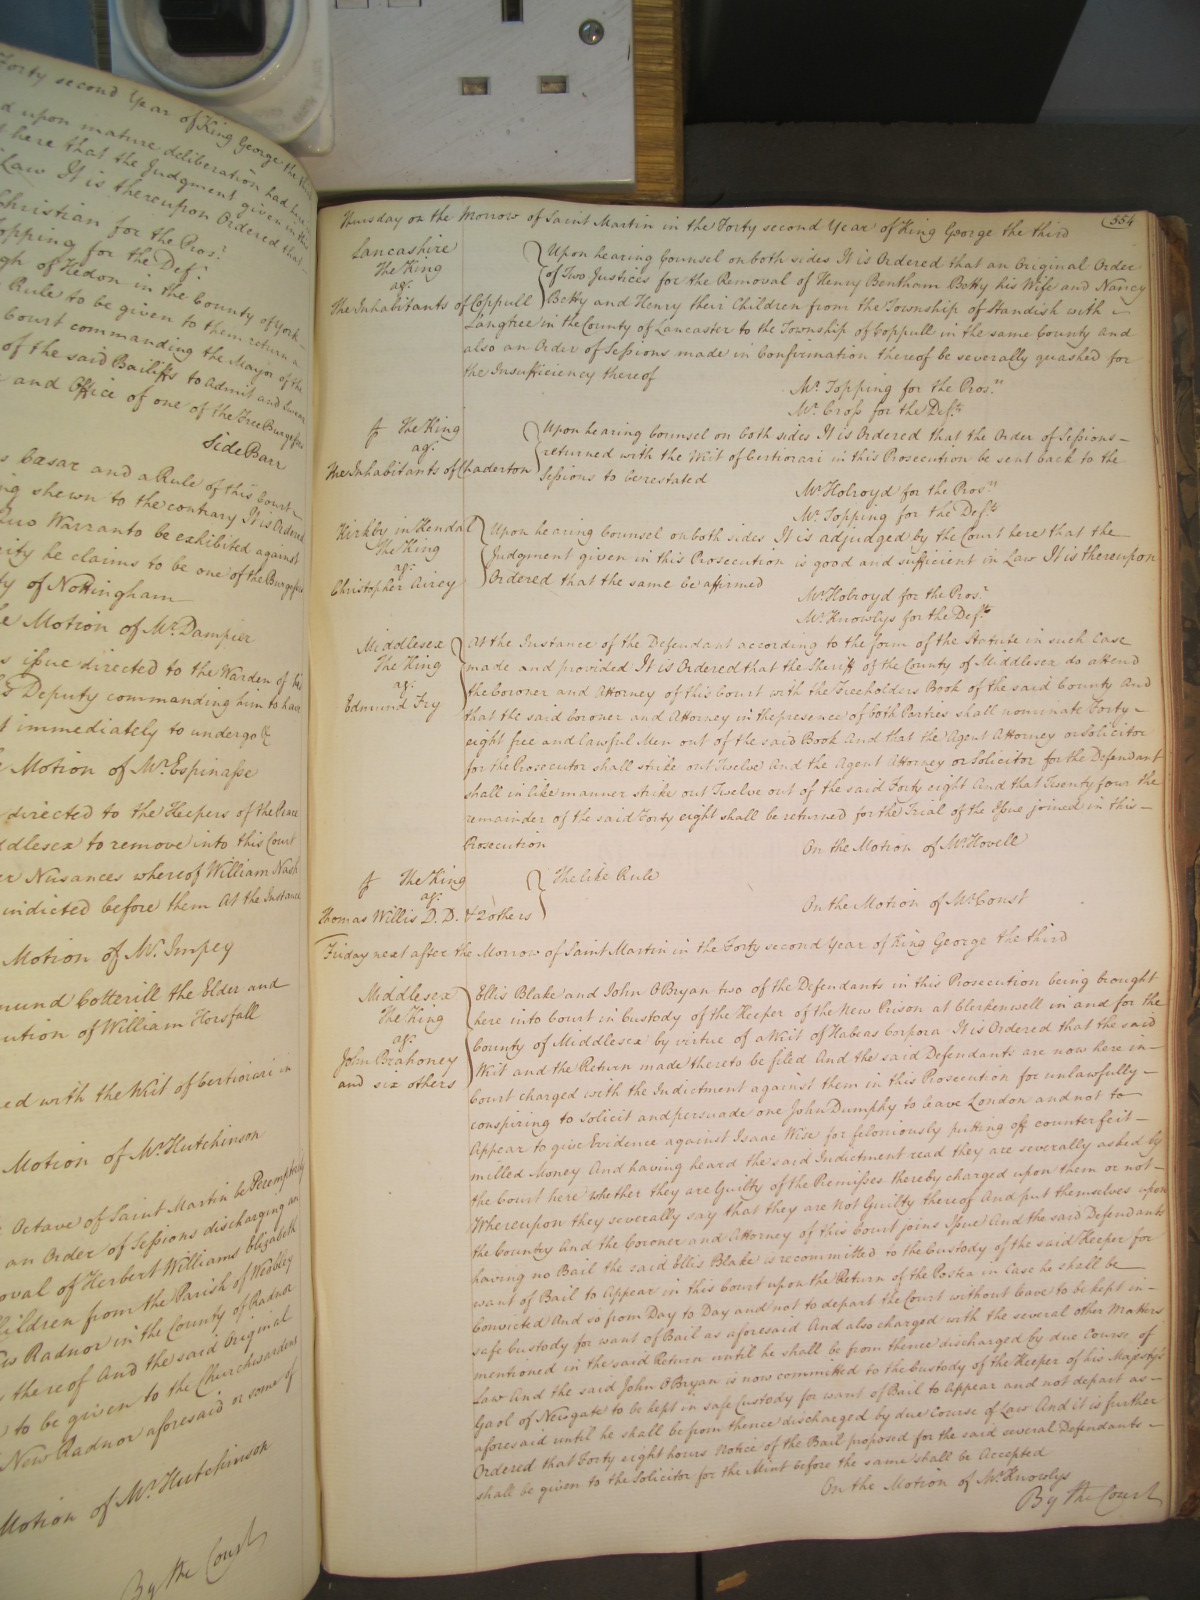 Forty second Year of King George the third
d upon mature deliberation had here
t here that the Judgment given in this
Law It is thereupon Ordered that
Christian for the Pros.r
opping for the Def.t
gh of Hedon in the County of York
Rule to be given to them return a
Court commanding the Mayor of the
of the said Bailiffs to Admit and Swear
and Office of one of the Free Burgesses
Side Barr
s Cæsar and a Rule of this Court
ng shewn to the contrary It is Ordered
Quo Warranto be exhibited against
rity he claims to be one of the Burgesses
ty of Nottingham
e Motion of Mr. Dampier
s issue directed to the Warden of his
Deputy commanding him to have
t immediately to undergo &c
Motion of Mr. Espinasse
directed to the Keepers of the Peace
ddlesex to remove into this Court
er Nusances whereof William Nash
indicted before them At the Instance
Motion of Mr. Impey
mund Cotterill the Elder and
ution of William Horsfall
ed with the Writ of Certiorari in
Motion of Mr. Hutchinson
Octave of Saint Martin be Peremptorily
an Order of Sessions discharging an
oval of Herbert Williams Elizabeth
Children from the Parish of Weobley
ew Radnor in the County of Radnor
thereof And the said Original
to be given to the Churchwardens
New Radnor aforesaid or some of
Motion of Mr. Hutchinson
By the Court
554
Thursday on the Morrow of Saint Martin in the Forty second Year of King George the third
Lancashire
The King
ag.t
The Inhabitants of Coppull
Upon hearing Counsel on both sides It is Ordered that an Original Order
of Two Justices for the Removal of Henry Bentham Betty his Wife and Nancy
Betty and Henry their Children from the Township of Standish with
Langtree in the County of Lancaster to the Township of Coppull in the same County And
also an Order of Sessions made in Confirmation thereof be severally quashed for
the Insufficiency thereof
Mr. Topping for the Pros.rs
Mr. Cross for the Def.ts
The King
ag.t
The Inhabitants of Chaderton
Upon hearing Counsel on both sides It is Ordered that the Order of Sessions
returned with the Writ of Certiorari in this Prosecution be sent back to the
Sessions to be restated
Mr. Holroyd for the Pros.rs
Mr. Topping for the Def.ts
Kirkby in Kendal
The King
ag.t
Christopher Airey
Upon hearing Counsel on both sides It is adjudged by the Court here that the
Judgment given in this Prosecution is good and sufficient in Law It is thereupon
Ordered that the same be affirmed
Mr. Holroyd for the Pros.r
Mr. Knowlys for the Def.t
Middlesex
The King
ag.t
Edmund Fry
At the Instance of the Defendant according to the form of the Statute in such Case
made and provided It is Ordered that the Sheriff of the County of Middlesex do attend
the Coroner and Attorney of this Court with the Freeholders Book of the said County And
that the said Coroner and Attorney in the presence of both Parties shall nominate Forty
eight free and lawful Men out of the said Book And that the Agent Attorney or Solicitor
for the Prosecutor shall strike out Twelve And the Agent Attorney or Solicitor for the Defendant
shall in like manner strike out Twelve out of the said Forty eight And that Twenty four the
remainder of the said Forty eight shall be returned for the Trial of the Issue joined in this
Prosecution
On the Motion of Mr. Hovell
The King
ag.t
Thomas Willis D. D. & 2 others
The like Rule
On the Motion of Mr. Const
Friday next after the Morrow of Saint Martin in the Forty second Year of King George the third
Middlesex
The King
ag.t
John Brahoney
and six others
Ellis Blake and John O Bryan two of the Defendants in this Prosecution being brought
here into Court in Custody of the Keeper of the New Prison at Clerkenwell in and for the
County of Middlesex by virtue of a Writ of Habeas Corpora It is Ordered that the said
Writ and the Return made thereto be filed And the said Defendants are now here in
Court charged with the Indictment against them in this Prosecution for unlawfully
conspiring to solicit and persuade one John Dumphy to leave London and not to
Appear to give Evidence against Isaac Wise for feloniously putting off counterfeit
milled Money And having heard the said Indictment read they are severally asked by
the Court here whether they are Guilty of the Premisses thereby charged upon them or not
Whereupon they severally say that they are Not Guilty thereof And put themselves upon
the Country And the Coroner and Attorney of this Court joins Issue And the said Defendants
having no Bail the said Ellis Blake is recommitted to the Custody of the said Keeper for
want of Bail to Appear in this Court upon the Return of the Postea in Case he shall be
Convicted And so from Day to Day and not to depart the Court without leave to be kept in
safe Custody for want of Bail as aforesaid And also charged with the several other Matters
mentioned in the said Return until he shall be from thence discharged by due Course of
Law And the said John O Bryan is now committed to the Custody of the Keeper of his Majesty's
Gaol of Newgate to be kept in safe Custody for want of Bail to Appear and not depart as
aforesaid until he shall be from thence discharged by due Course of Law And it is further
Ordered that Forty eight hours Notice of the Bail proposed for the said several Defendants
shall be given to the Solicitor for the Mint before the same shall be Accepted
On the Motion of Mr. Knowlys
By the Court